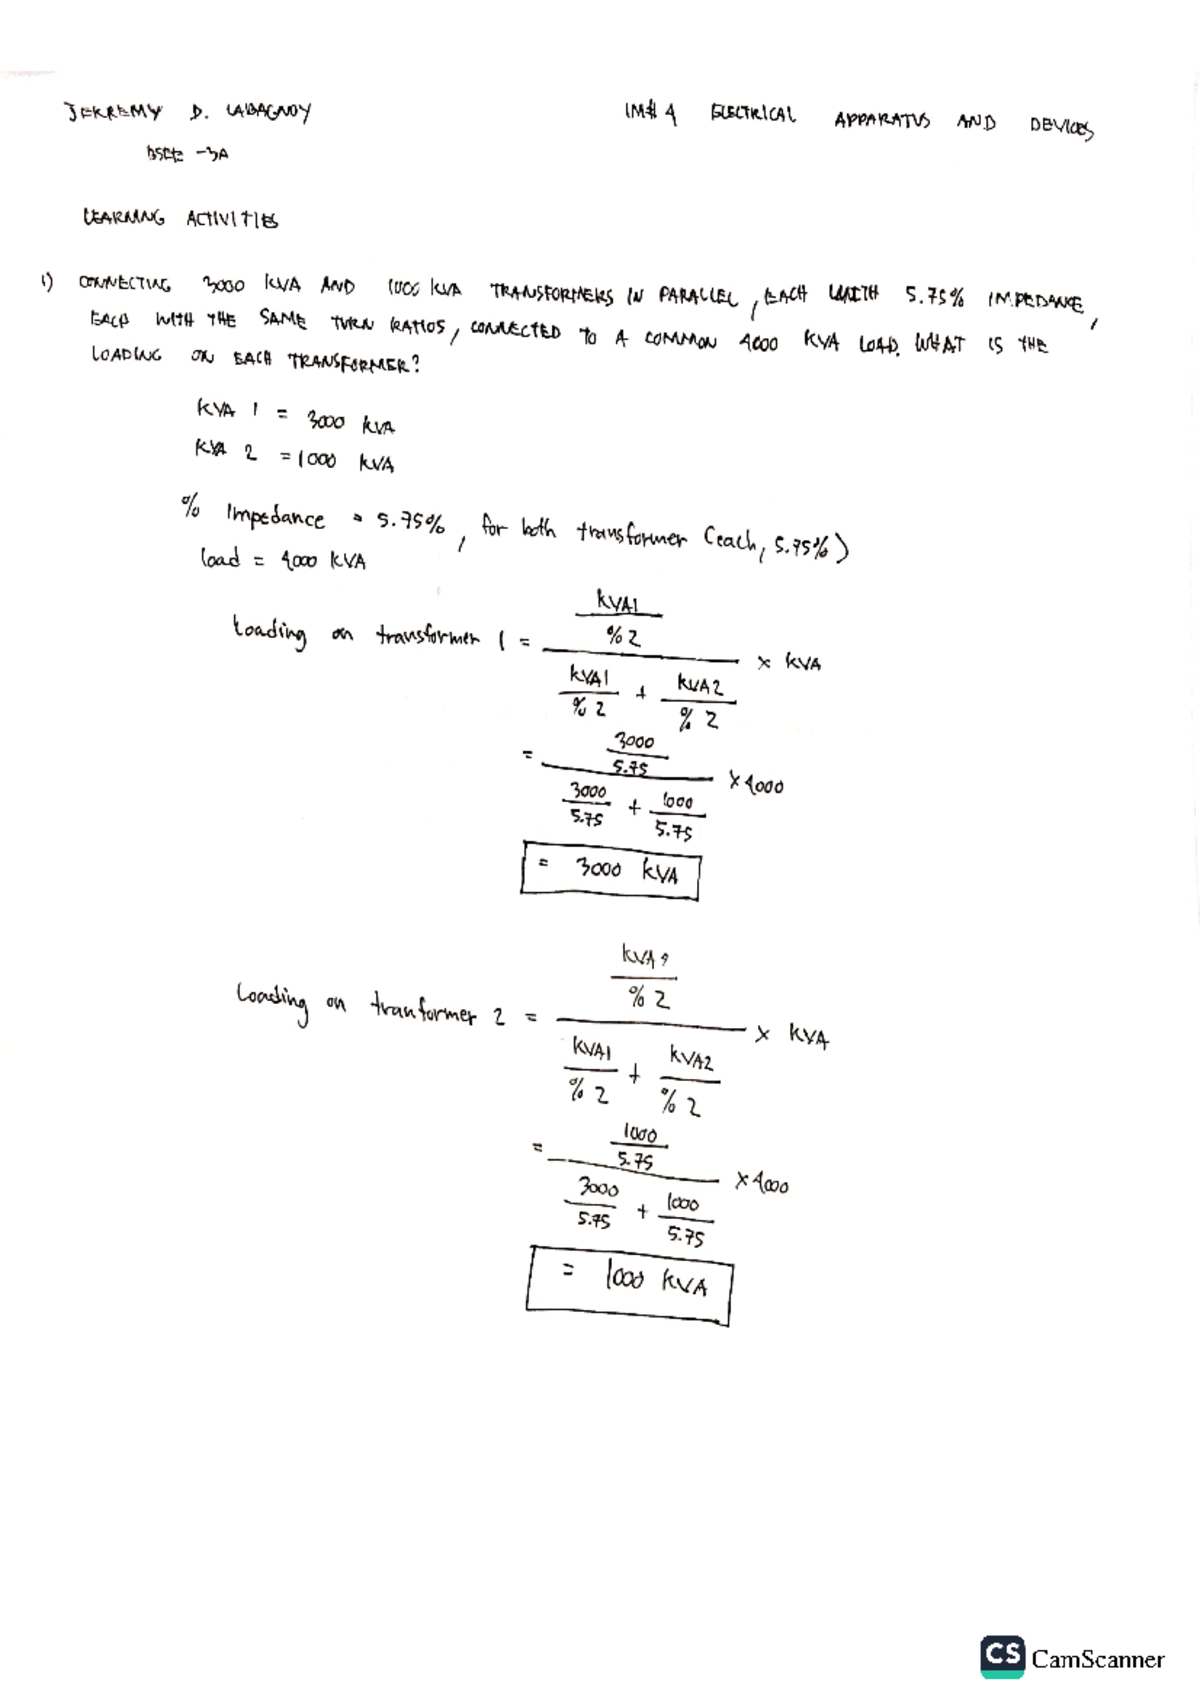 JEKREMY D. LABAGNOY
IM# 4 ELECTRICAL APPARATUS AND DEVICES
BSEE -3A
LEARNING ACTIVITIES
1) CONNECTING 3000 KVA AND 1000 KVA TRANSFORMERS IN PARALLEL, EACH WITH 5.75% IMPEDANCE,
EACH WITH THE SAME TURN RATIOS, CONNECTED TO A COMMON 4000 KVA LOAD. WHAT IS THE
LOADING ON EACH TRANSFORMER?
KVA 1 = 3000 KVA
KVA 2 = 1000 KVA
% Impedance = 5.75%, for both transformer (each, 5.75%)
load = 4000 KVA
KVA1
Loading on transformer 1 = % Z × KVA
KVA1 + KVA2
% Z % Z
3000
= 5.75 × 4000
3000 + 1000
5.75 5.75
= 3000 KVA
KVA2
Loading on tranformer 2 = % Z × KVA
KVA1 + KVA2
% Z % Z
1000
= 5.75 × 4000
3000 + 1000
5.75 5.75
= 1000 KVA
CS CamScanner